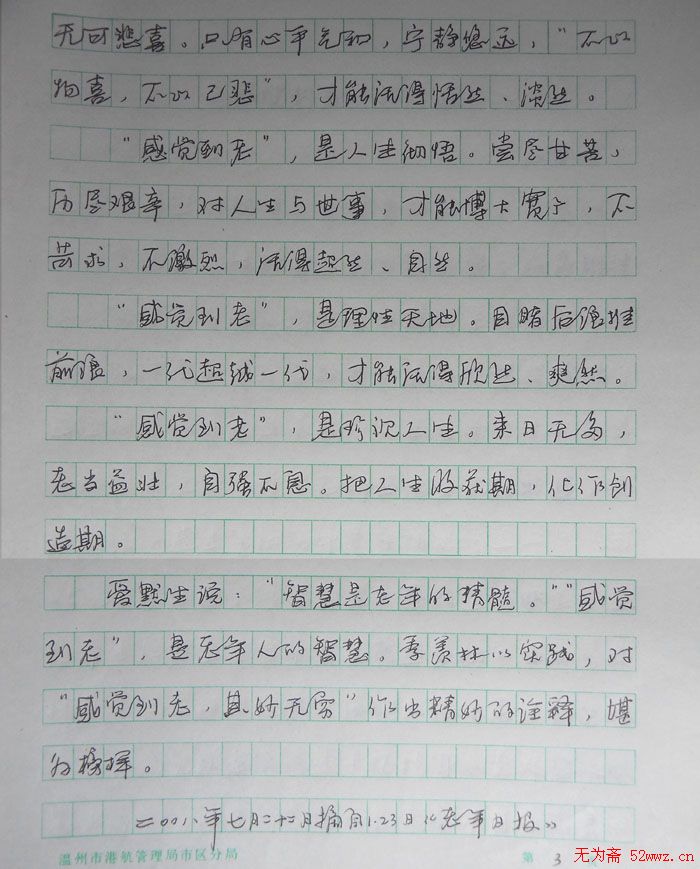 无可悲喜。只有心平气和，宁静悠远，“不以
物喜，不以己悲”，才能活得恬然、淡然。
“感觉到老”，是人生彻悟。尝尽甘苦，
历尽艰辛，对人生与世事，才能博大宽宁，不
苛求，不激烈，活得超然、自然。
“感觉到老”，是理性天地。目睹后浪推
前浪，一代超越一代，才能活得欣然、爽然。
“感觉到老”，是珍视人生。来日无多，
老当益壮，自强不息。把人生收获期，化作创
造期。
爱默生说：“智慧是老年的精髓。”“感觉
到老”，是老年人的智慧。季羡林以实践，对
“感觉到老，其妙无穷”作出精妙的诠释，堪
为榜样。
二00八年七月二十二日摘自1.23日《老年日报》
温州市港航管理局市区分局 第 3
无为斋 52wwz.cn